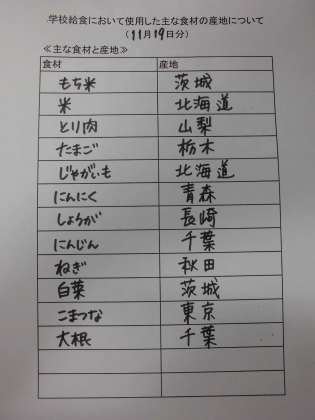 学校給食において使用した主な食材の産地について
(11月19日分)
≪主な食材と産地≫
食材 産地
もち米 茨城
米 北海道
とり肉 山梨
たまご 栃木
じゃがいも 北海道
にんにく 青森
しょうが 長崎
にんじん 千葉
ねぎ 秋田
白菜 茨城
こまつな 東京
大根 千葉